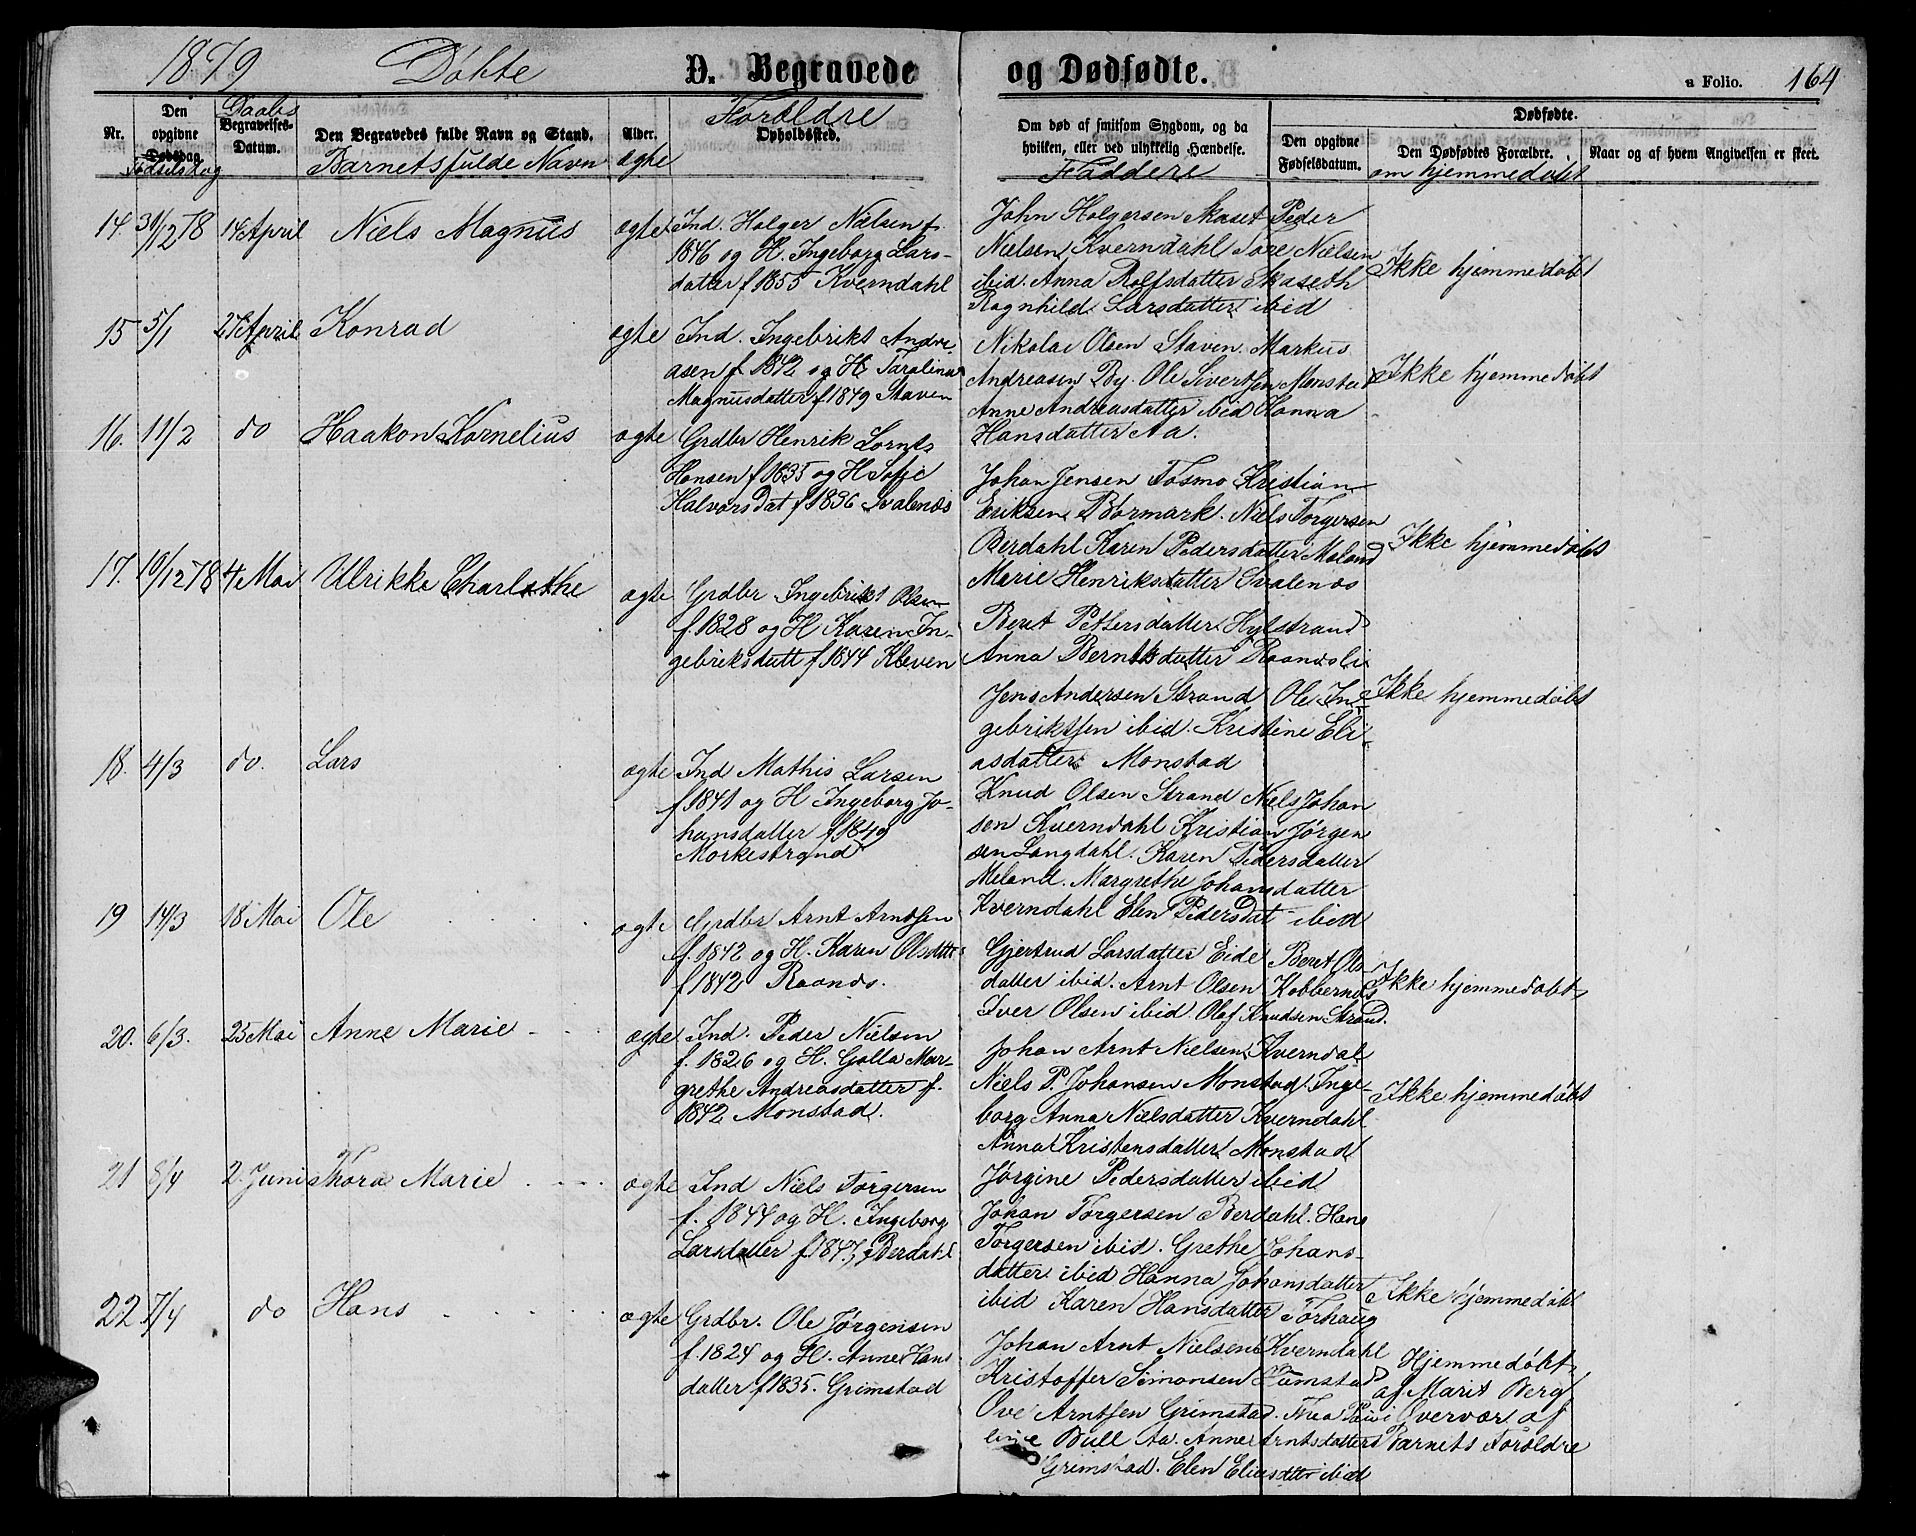 1879 Døbte D. Begravede og Dødfødte. a Folio. 164
Nr.
Den opgivne Dødsdag.
Fødselsdag
Daabs
Begravelses-Datum.
Den Begravedes fulde Navn og Stand.
Barnets fulde Navn
Alder.
ægte
Forældre
Opholdssted.
Om død af smitsom Sygdom, og da
hvilken, eller ved ulykkelig Hændelse.
Faddere
Dødfødte.
Den opgivne
Fødselsdatum.
Den Dødfødtes Forældre.
om hjemmedøbt
Naar og af hvem Angivelsen er skeet.
14. 31/12 78 14 April Niels Magnus ægte
Ind. Holger Nielsen f
1846 og H. Ingeborg Lars-
datter f 1855 Kverndahl
John Holgersen Skaset Peder
Nielsen Kverndahl Tore Nielsen
ibid. Anna Rolfsdatter Skaseth
Ragnhild Larsdatter ibid
Ikke hjemmedøbt
15 5/1 27 April Konrad ægte
Ind. Ingebrikt Andre-
asen f 1842 og H.
Magnusdatter f 1849 Staven
Nikolai Olsen Staven. Markus
Andreasen By. Ole Sivertsen Monstad
Anne Andreasdatter ibid Hanna
Hansdatter Aa.
Ikke hjemmedøbt
16. 11/2 do Haakon Kornelius ægte
Grdbr Henrik Lornts
Hansen f 1835 og H Sofie
Halvorsdat f 1836 Svalenæs
Johan Jensen Fosmo Kristian
Eriksen Bormark. Niels Torgersen
Berdahl Karen Pedersdatter Meland
Marie Henriksdatter Svalenæs
Ikke hjemmedøbt
17. 19/12 78 4 Mai Ulrikke Charlotthe ægte
Grdbr Ingebrikt Olsen
f. 1828 og H Karen In-
gebriksdatt f 1844 Kleven
Beret Pettersdatter Hylstrand
Anna Berntsdatter Raanæsli
Jens Andersen Strand Ole In-
gebriktsen ibid. Kristine Eli-
asdatter Monstad
Ikke hjemmedøbt
18. 4/3 do. Lars ægte
Ind Mathis Larsen
f 1841 og H Ingeborg Jo-
hansdatter f 1849
Morkestrand
Knud Olsen Strand Niels Johan
sen Kverndahl Kristian Jørgen
sen Langdahl. Karen Pedersdatter
Meland. Margrethe Johansdatter
Kverndahl Elen Pedersdat ibid
19 14/3 18 Mai Ole ægte
Grdbr Arnt Arntsen
f. 1842 og H. Karen Olsdatter
f 1842 Raanæs.
Gjertrud Larsdatter Eide Beret Ols-
datter ibid. Arnt Olsen Kobbernæs
Iver Olsen ibid Olaf Knudsen Strand.
Ikke hjemmedøbt
20. 6/3. 25 Mai Anne Marie ægte
Ind. Peder Nielsen
f. 1826 og H. Golla Mar-
grethe Andreasdatter f.
1842 Monstad.
Johan Arnt Nielsen Kverndal
Niels P. Johansen Monstad. Inge-
borg Anna Nielsdatter Kverndahl
Anna Kristensdatter Monstad
Jørgine Pedersdatter ibid
Ikke hjemmedøbt
21 8/4 2. Juni Thora Marie ægte
Ind Niels Torgersen
f. 1844 og H. Ingeborg
Larsdatter f 1847, Berdahl
Johan Torgersen Berdahl. Hans
Torgersen ibid. Grethe Johans-
datter ibid Hanna Johansdatter
ibid Karen Hansdatter Torhaug
Ikke hjemmedøbt
22 7/4 do Hans ægte
Grdbr. Ole Jørgensen
f. 1824 og H. Anne Hans
datter f 1835. Grimstad
Johan Arnt Nielsen Kverndahl
Kristoffer Simonsen
Ove Arntsen Grimstad. Thea Pau
line Bull Aa. Anne Arntsdatter
Grimstad. Elen Eliasdatter ibid
Hjemmedøbt
af Marit Berg
i Overvær af
Barnets Forældre